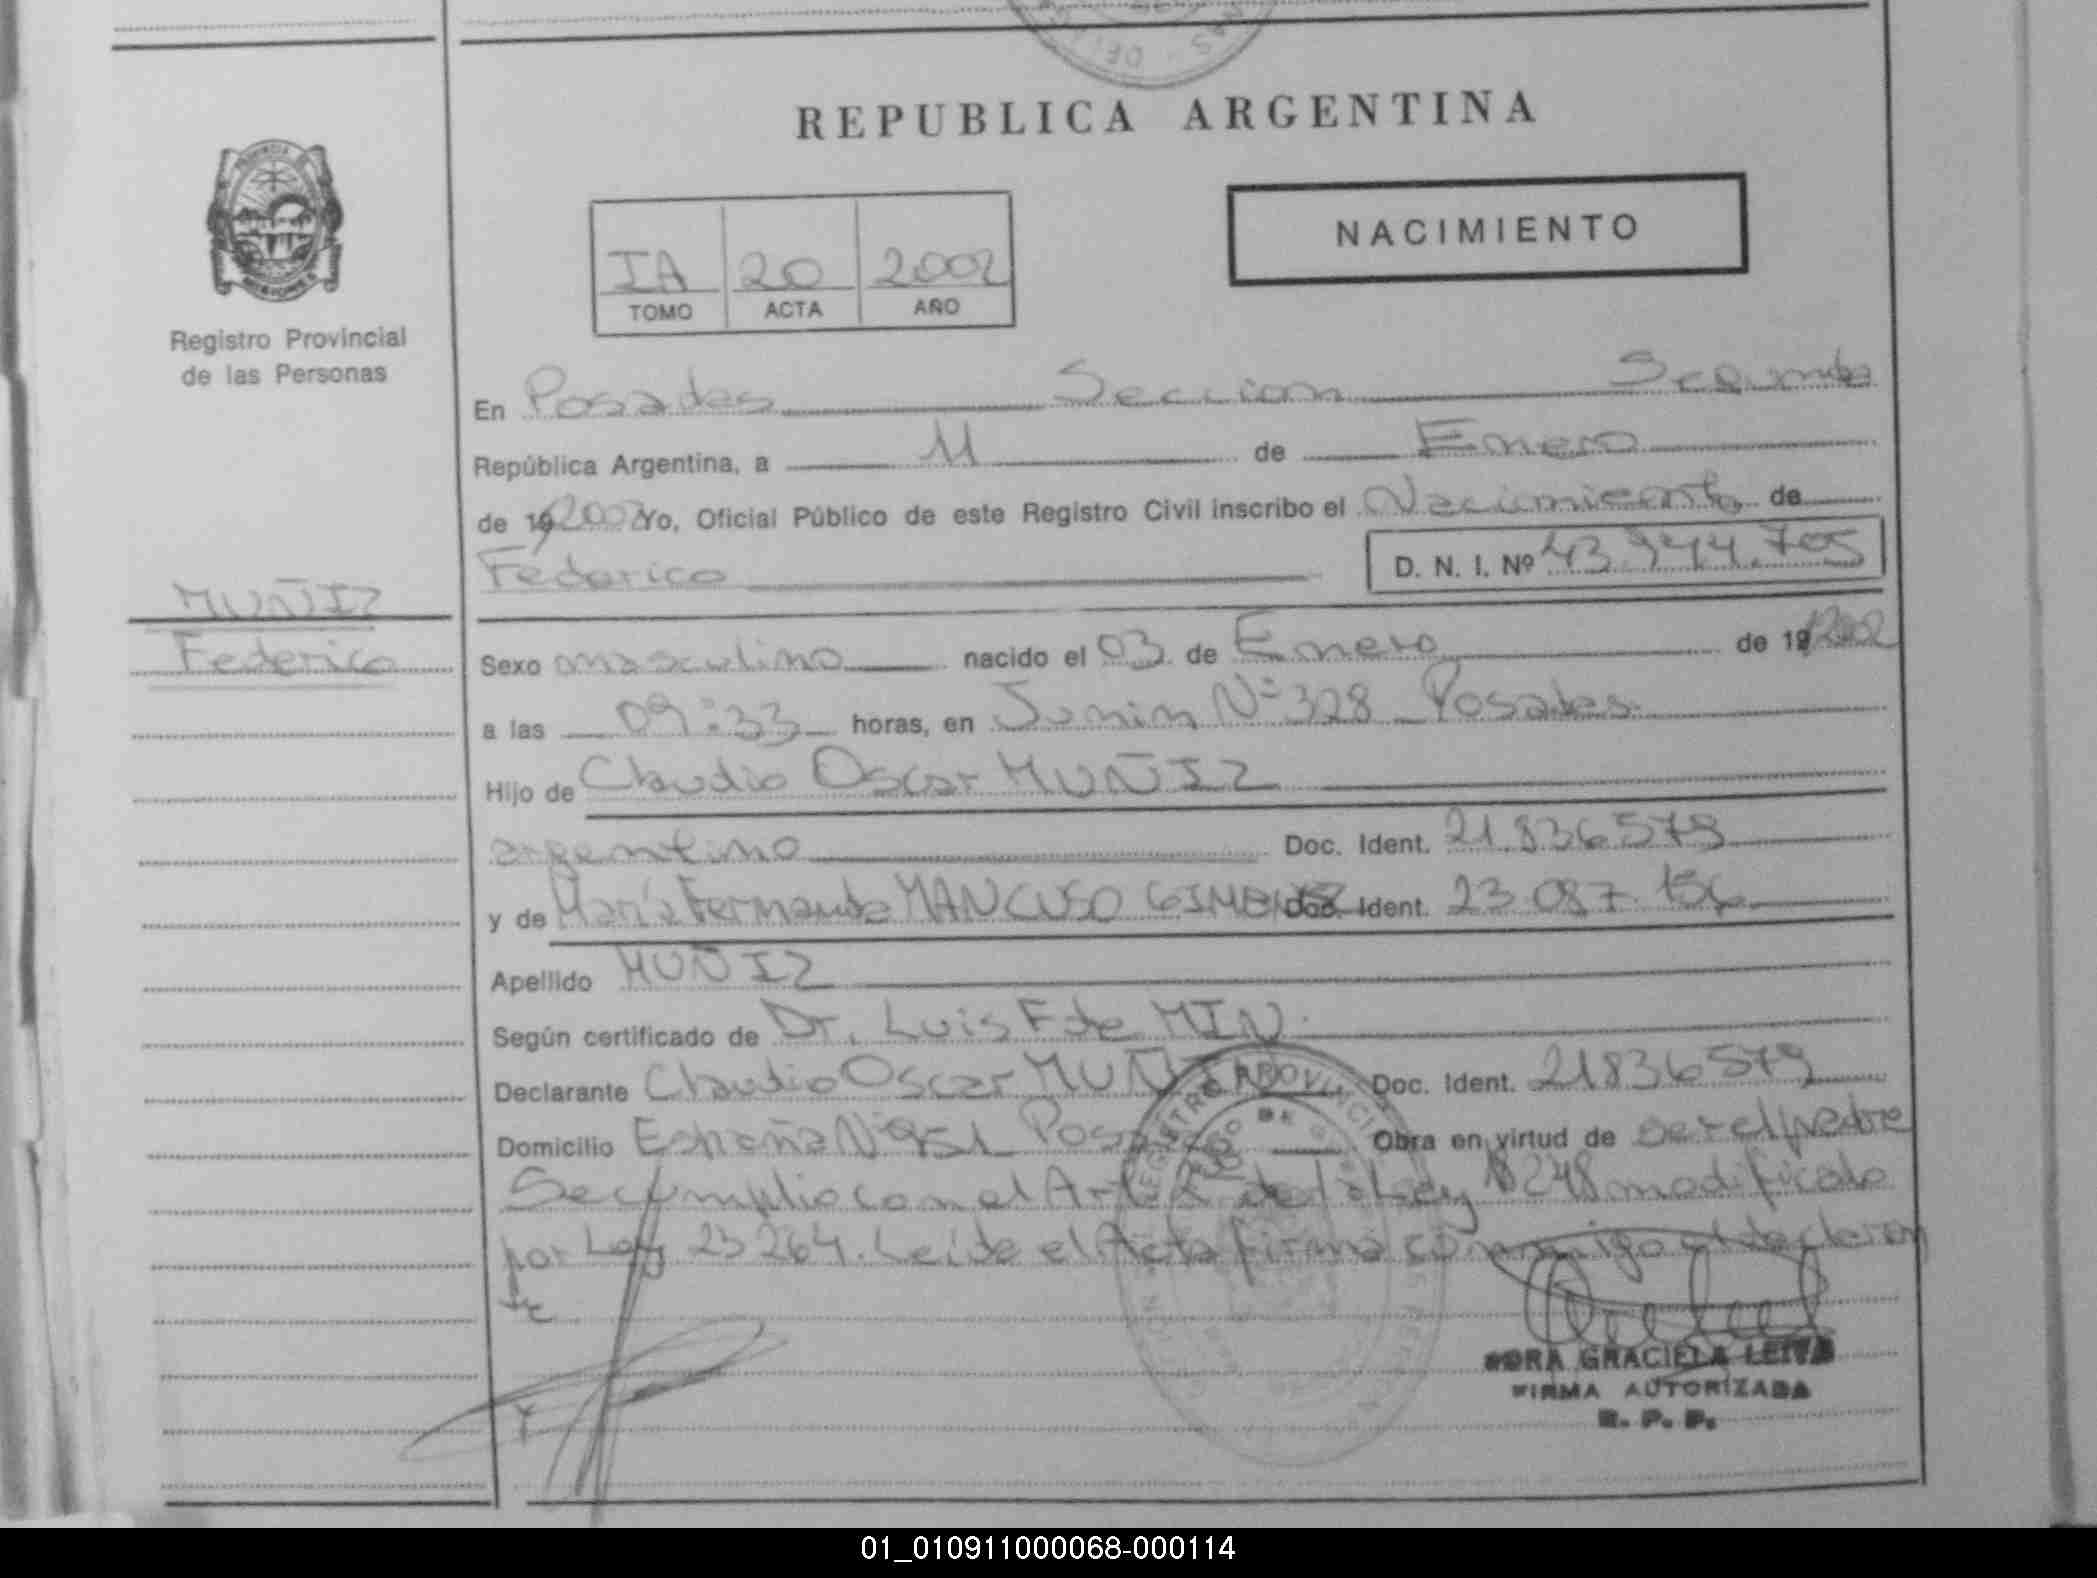 REPUBLICA ARGENTINA
NACIMIENTO
IA 20 2002
TOMO ACTA AÑO
Registro Provincial
de las Personas
En Posadas Seccion Segunda
República Argentina, a 11 de Enero
de 19 2002 Yo, Oficial Público de este Registro Civil inscribo el Nacimiento de
Federico D. N. I. Nº 43.944.705
MUÑIZ
Federico
Sexo masculino nacido el 03 de Enero de 19 2002
a las 09:33 horas, en Junin Nº 328 Posadas
Hijo de Claudio Oscar MUÑIZ
argentino Doc. Ident. 21.836579
y de María Fernanda MANCUSO GIMENEZ Doc. Ident. 23 087 156
Apellido MUÑIZ
Según certificado de Dr. Luis F de MIN.
Declarante Claudio Oscar MUÑIZ Doc. Ident. 21836579
Domicilio España Nº 951 Posadas Obra en virtud de ser el padre
Se cumplio con el Art. de la Ley 18248 modificado
por Ley 23264. Leida el Acta firma conmigo el declaran
te
GRACIELA LEIVA
FIRMA AUTORIZADA
R. P. P.
01_010911000068-000114